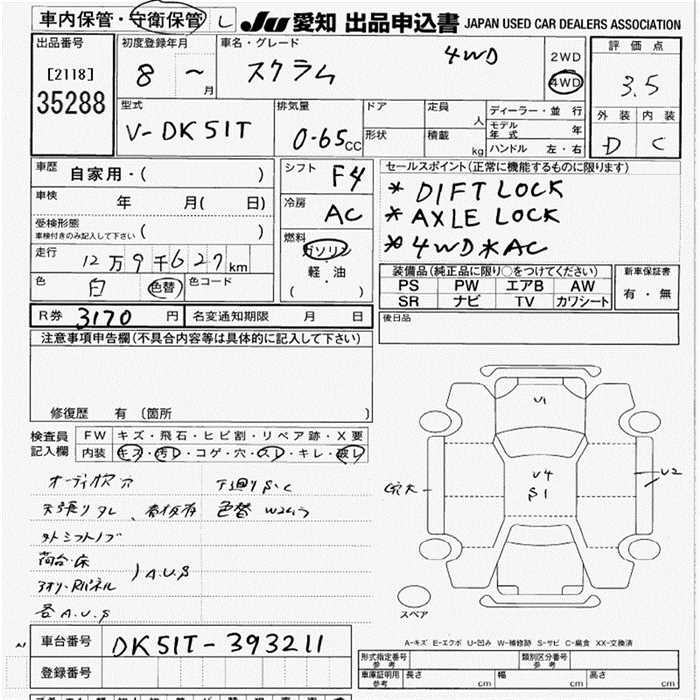 車内保管・守衛保管 L JU 愛知 出品申込書 JAPAN USED CAR DEALERS ASSOCIATION
出品番号 初度登録年月 車名・グレード 4WD 2WD 評価点
[2118] 8 〜 月 スクラム 4WD 3.5
35288
型式 排気量 ドア 定員 人 ディーラー・並行 外装 内装
V-DK51T 0.65CC 形状 積載 kg モデル年式 年 D C
ハンドル 左・右
車歴 自家用・( ) シフト F4 セールスポイント(正常に機能するものに限ります)
車検 年 月( 日) 冷房 AC * DIFT LOCK
受検形態 ( ) * AXLE LOCK
車検付きのみ記入して下さい 燃料 * 4WD * AC
走行 12万9千627km ガソリン
軽・油
( )
色 白 色替 色コード
装備品(純正品に限り○をつけてください) 新車保証書
PS PW エアB AW 有・無
SR ナビ TV カワシート
R券 3170 円 名変通知期限 月 日 後日品
注意事項申告欄(不具合内容等は具体的に記入して下さい)
修復歴 有 (箇所 )
検査員 FW キズ・飛石・ヒビ割・リペア跡・X要
記入欄 内装 キズ・汚レ・コゲ・穴・スレ・キレ・破レ
オーディオ穴 下廻りS.C
天張りタレ、 色替
外シフトノブ
荷台・床
アオリ・Rパネル ) A.U.S
各A.U.S
U1
U4
S1
U2
スペア
車台番号 DK51T-393211
登録番号
A-キズ E-エクボ U-凹み W-補修跡 S-サビ C-腐食 XX-交換済
形式指定番号 参考 類別区分番号 参考
車庫証明用 参考 長さ cm 幅 cm 高さ cm